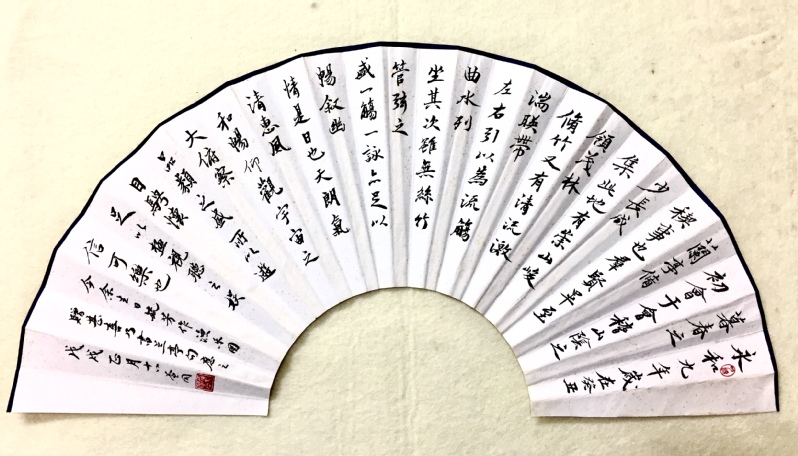 永和九年歲在癸丑
暮春之
初會于會稽山陰之
蘭亭脩
稧事也羣賢畢至
少長咸
集此地有崇山峻
領茂林
脩竹又有清流激
湍暎帶
左右引以為流觴
曲水列
坐其次雖無絲竹
管弦之
盛一觴一詠亦足以
暢敘幽
情是日也天朗氣
清惠風
和暢仰觀宇宙之
大俯察
品類之盛所以遊
目騁懷
足以極視聽之娛
信可樂也
戊戌正月十八